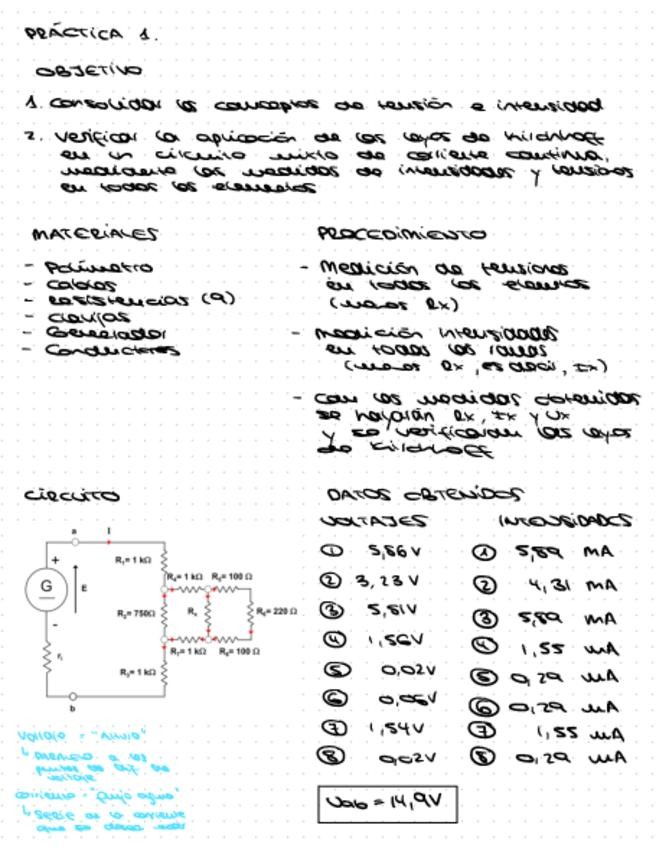 PRÁCTICA 1.
OBJETIVO
1. consolidar los conceptos de tensión e intensidad
2. verificar la aplicación de las leyes de Kirchhoff
en un circuito mixto de corriente continua,
mediante las medidas de intensidades y tensiones
en todos los elementos
MATERIALES
- Polímetro
- Cables
- resistencias (9)
- clavijas
- Generador
- Conductores
PROCEDIMIENTO
- Medición de tensiones
en todos los elementos
(menos Rx)
- medición intensidades
en todas las ramas
(menos Rx, es decir, Ix)
- con las medidas obtenidas
se hayarán Rx, Ix y Ux
y se verificarán las leyes
de Kirchhoff
CIRCUITO
a I
R₁= 1 kΩ
R₄= 1 kΩ R₅= 100 Ω
+
G E
-
R₂= 750Ω Rₓ R₆= 220 Ω
R₇= 1 kΩ R₈= 100 Ω
rᵢ
R₃= 1 kΩ
b
voltaje = "Alivio"
↳ paralelo a los
puntos de dif. de
voltaje
corriente = "flujo agua"
↳ serie de la corriente
que se desea medir
DATOS OBTENIDOS
VOLTAJES
① 5,86 V
② 3,23 V
③ 5,81V
④ 1,56V
⑤ 0,02V
⑥ 0,06V
⑦ 1,54V
⑧ 0,02V
Uab = 14,9V
INTENSIDADES
① 5,89 mA
② 4,31 mA
③ 5,89 mA
④ 1,55 mA
⑤ 0,29 mA
⑥ 0,29 mA
⑦ 1,55 mA
⑧ 0,29 mA